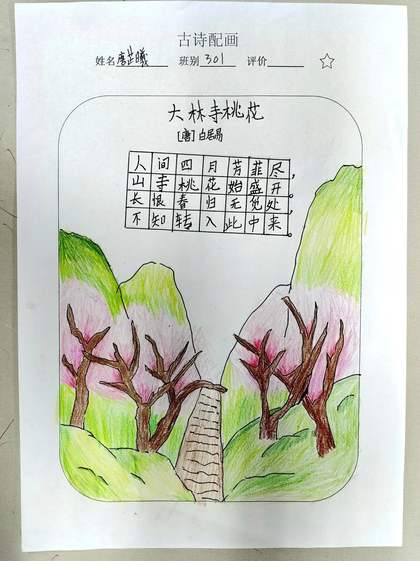 古诗配画
姓名唐芷曦 班别301 评价
大林寺桃花
[唐]白居易
人间四月芳菲尽，
山寺桃花始盛开。
长恨春归无觅处，
不知转入此中来。